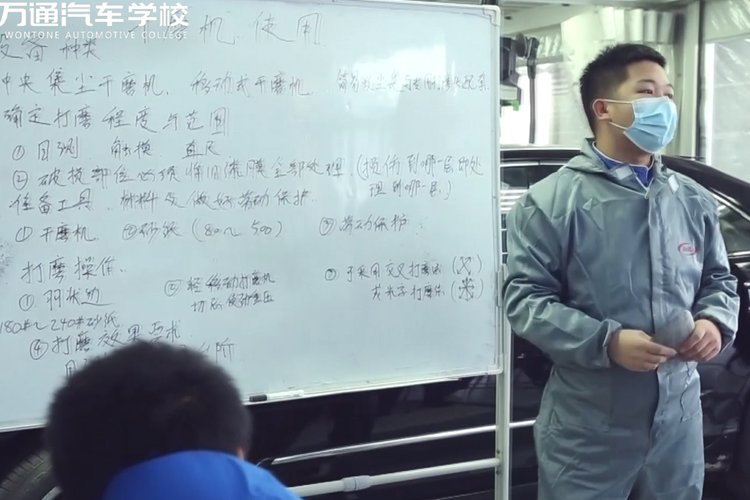 万通汽车学校
WONTONE AUTOMOTIVE COLLEGE
机 使用
设备种类
中央集尘干磨机、移动式干磨机、
确定打磨程度与范围
①目测 触摸 直尺
②破损部位必须将旧漆膜全部处理、(损伤到哪一层即处
理到哪一层)
准备工具、材料及做好劳动保护
①干磨机 ②砂纸(80~500) ③劳动保护
打磨操作
①羽状边
②经 移动打磨机
切忌使劲重压
③可采用交叉打磨法(X)
或米字打磨法(米)
180#~240#砂纸
④打磨效果要求
阶